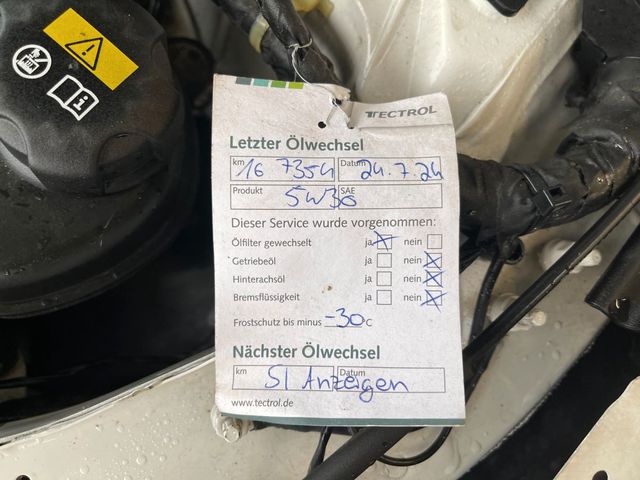 TECTROL
Letzter Ölwechsel
km 16 7354 Datum 24.7.24
Produkt 5W30 SAE
Dieser Service wurde vorgenommen:
Ölfilter gewechselt ja nein
Getriebeöl ja nein
Hinterachsöl ja nein
Bremsflüssigkeit ja nein
Frostschutz bis minus -30 °C
Nächster Ölwechsel
km SI Anzeigen Datum
www.tectrol.de